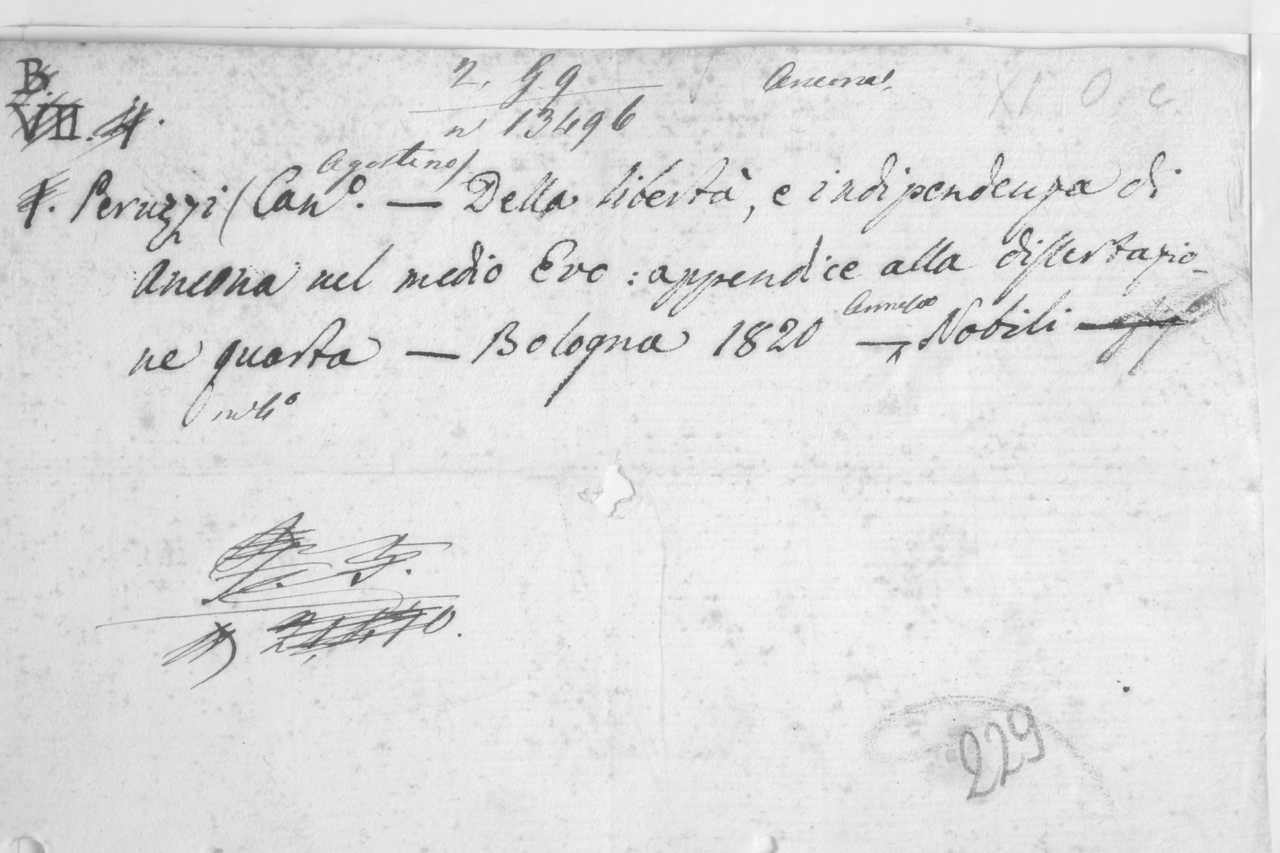 B.
VII. 4.
2. G. 9
n° 13496
Ancona.
XI O. c.
Agostino)
Peruzzi (Can°. — Della libertà, e indipendenza di
Ancona nel medio Evo : appendice alla dissertazio-
ne quarta — Bologna 1820 — Annesio Nobili
in 4°
229